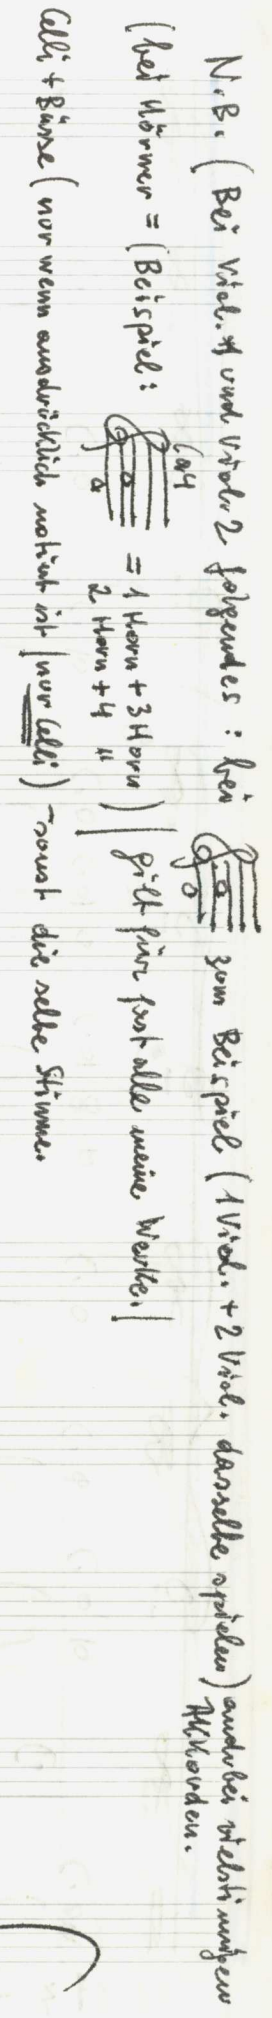 N.B. (Bei Viol. 1 und Viol. 2 folgendes: bei zum Beispiel (1 Viol. + 2 Viol. dasselbe spielen) auch bei vielstimmigen Akkorden.
(bei Hörner = (Beispiel: (a4 = 1 Horn + 3 Horn
2 Horn + 4 " ) | gilt für fast alle meine Werke. |
Celli + Bässe (nur wenn ausdrücklich notiert ist | nur Celli) – sonst die selbe Stimme.